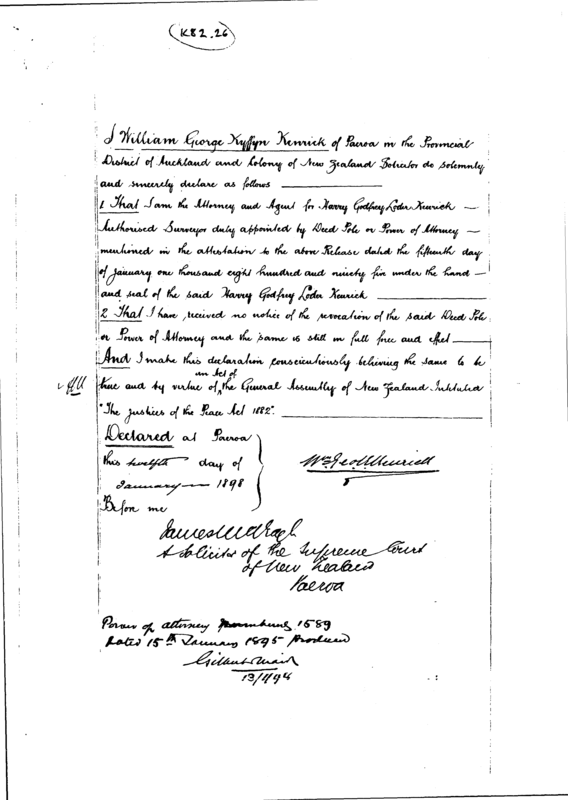 K82.26
I William George Kyffyn Kenrick of Paeroa in the Provincial
District of Auckland and Colony of New Zealand Solicitor do solemnly
and sincerely declare as follows
1 That I am the Attorney and Agent for Harry Godfrey Loder Kenrick
Authorised Surveyor duly appointed by Deed Pole or Power of Attorney
mentioned in the attestation to the above Release dated the fifteenth day
of January one thousand eight hundred and ninety five under the hand
and seal of the said Harry Godfrey Loder Kenrick
2 That I have received no notice of the revocation of the said Deed Pole
or Power of Attorney and the same is still in full force and effect
And I make this declaration conscientiously believing the same to be
an Act of
true and by virtue of the General Assembly of New Zealand Intituled
"The Justices of the Peace Act 1882".
Declared at Paeroa
this twelfth day of
January 1898
Before me
A Solicitor of the Supreme Court
of New Zealand
Paeroa
Power of attorney 1589
Dated 15th January 1895 Produced